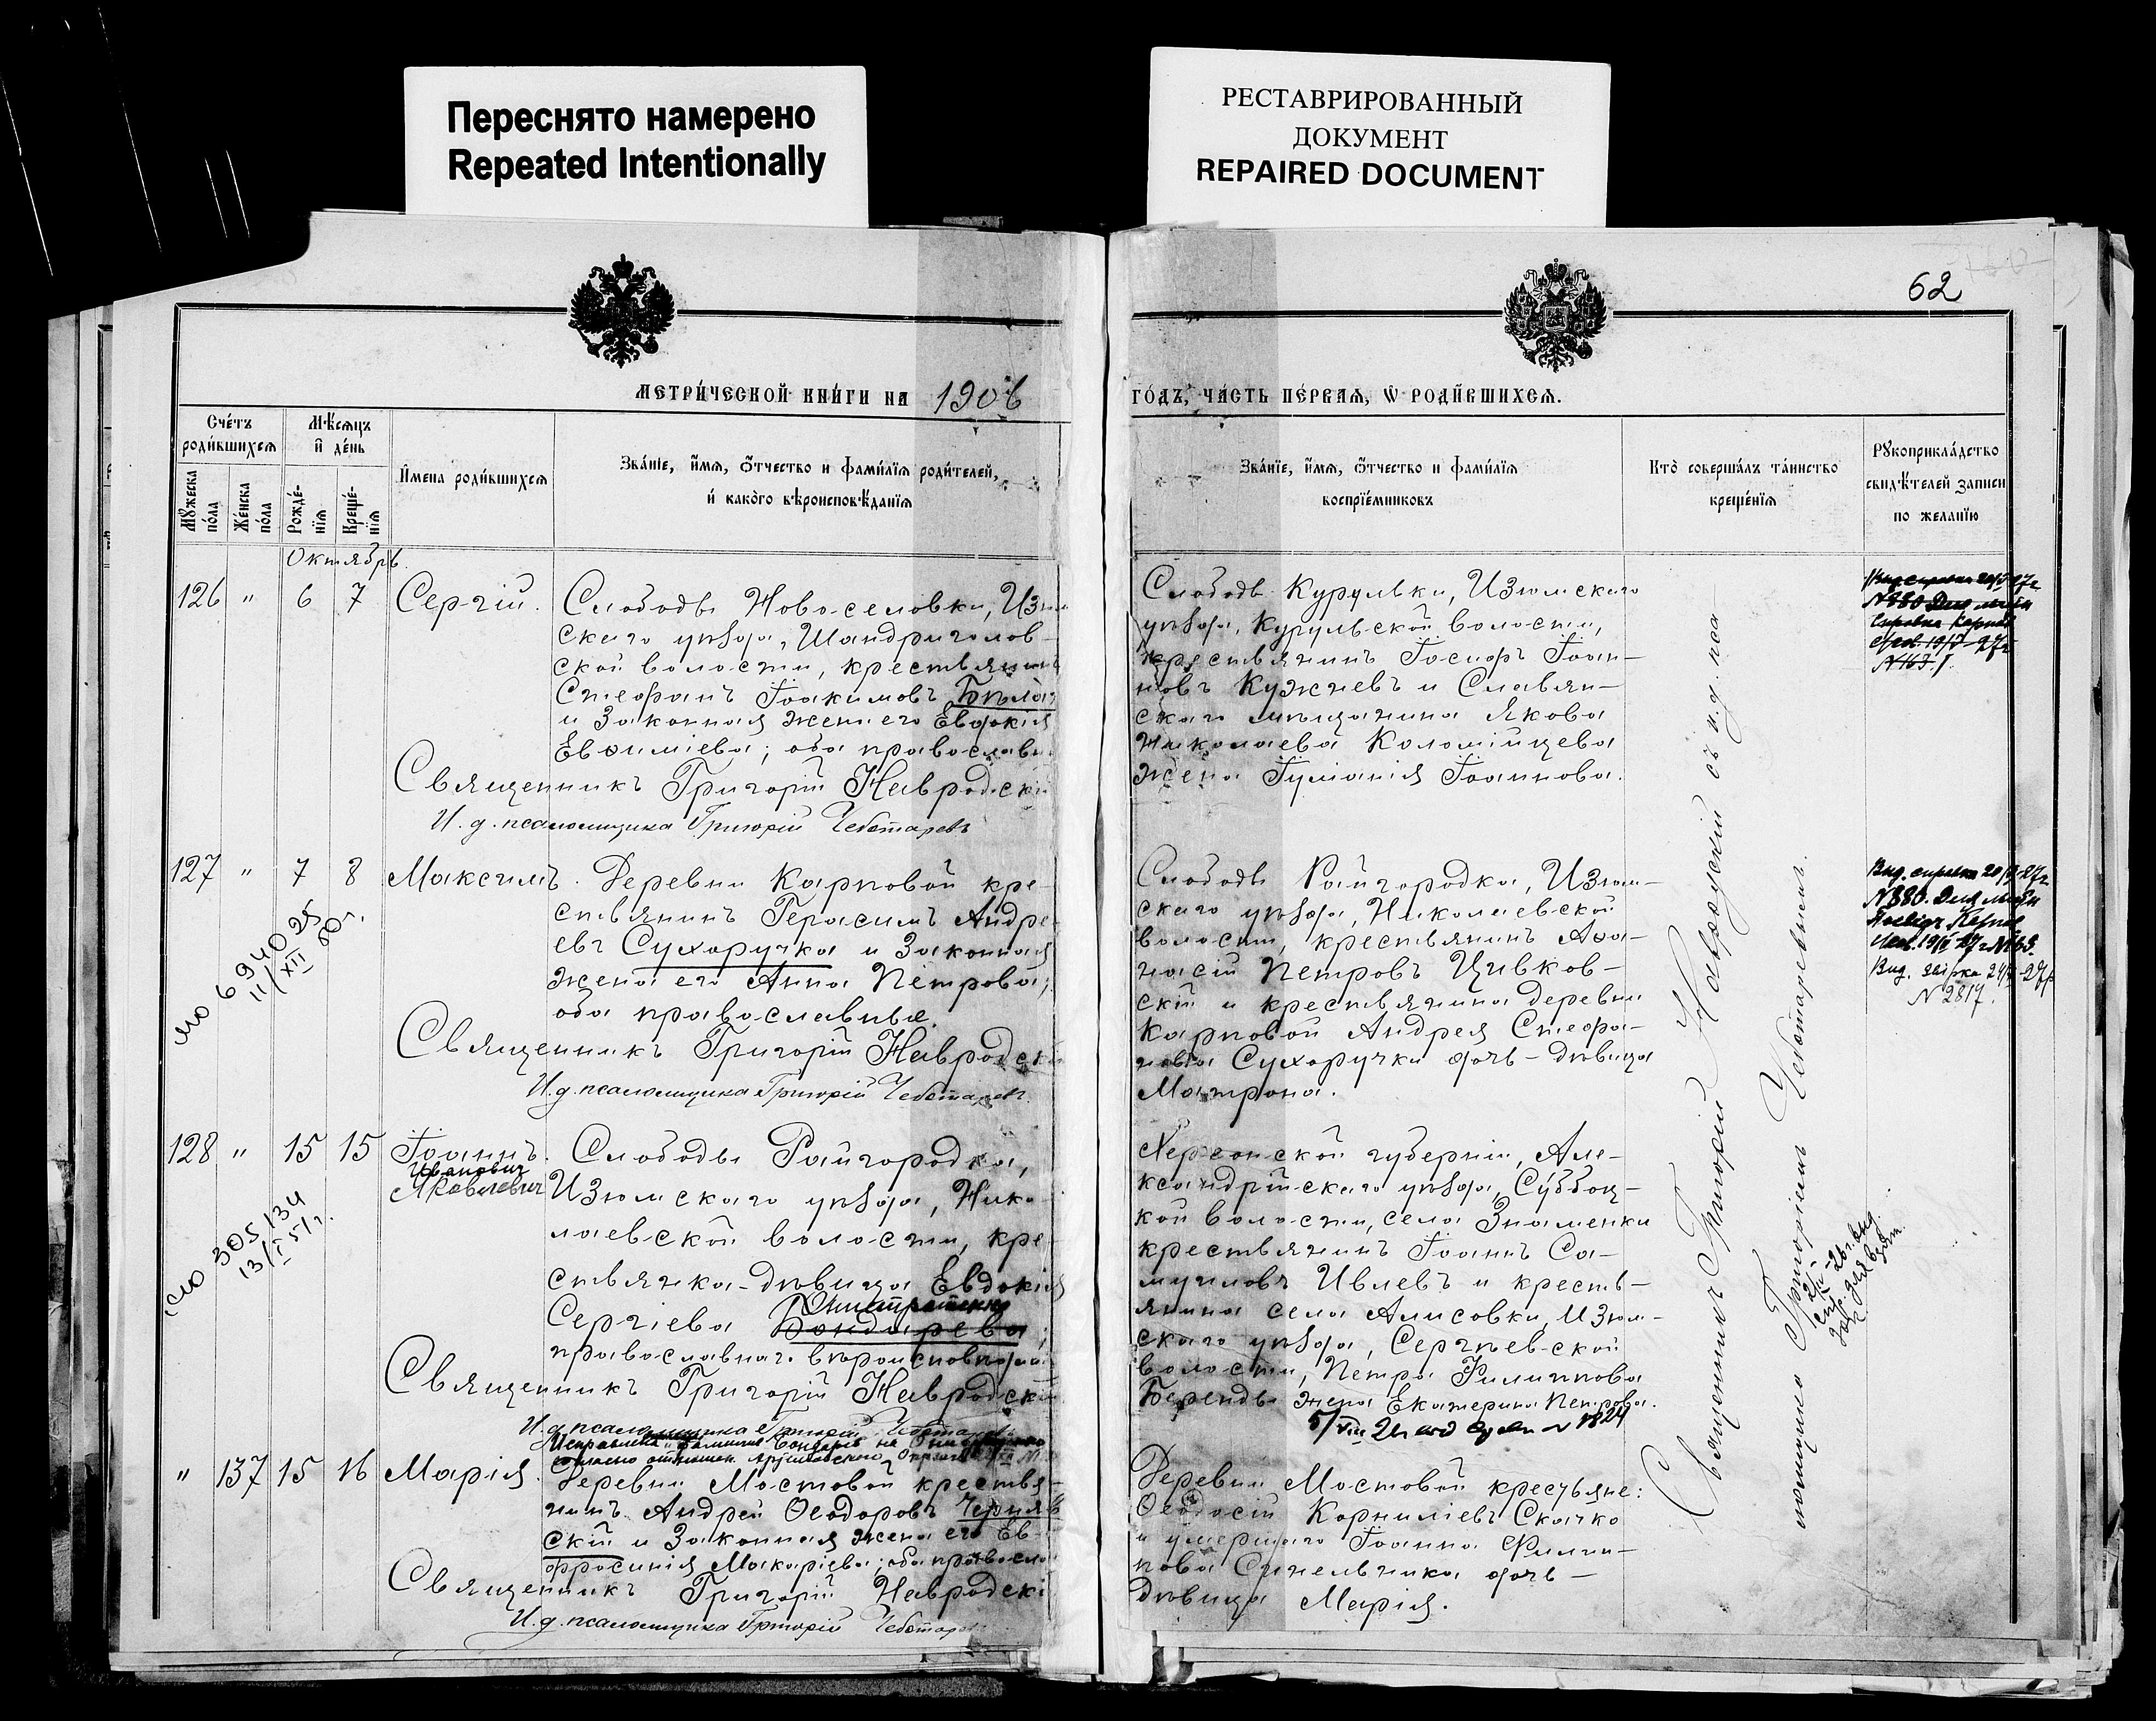 Переснято намерено
Repeated Intentionally
РЕСТАВРИРОВАННЫЙ
ДОКУМЕНТ
REPAIRED DOCUMENT
62
МЕТРИ́ЧЕСКОЙ КНИ́ГИ НА 1906
ГО́ДЪ, ЧА́СТЬ ПЕ́РВАЯ, Ѡ РОДИ́ВШИХСЯ.
Сче́тъ
роди́вшихся
Мꙋжеска
по́ла
Же́нска
по́ла
Мѣ́сяцъ
и де́нь
Рожде́-
нїя
Креще́-
нїя
Имена роди́вшихся
Зва́нїе, и́мя, о́тчество и фами́лїя роди́телей,
и како́го вѣроисповѣ́данїя
Зва́нїе, и́мя, о́тчество и фами́лїя
воспрїе́мниковъ
Кто̀ соверша́лъ та́инство
креще́нїя
Рꙋкоприкла́дство
свидѣ́телей записи
по желанїю
Октябрь.
126 " 6 7 Сергій.
Слободы Новоселовки, Изюм
скаго уѣзда, Шандриголов-
ской волости, крестьянинъ
Стефанъ Іоакимовъ
и законная жена его Евдокія
Евѳиміева; оба православн
Священникъ Григорій Навродскій
И. д. псаломщика Григорій Чеботаревъ
Слободы Курульки, Изюмскаго
уѣзда, Курульской волости,
крестьянинъ Іосифъ Іоан-
новъ Кужневъ и Славян-
скаго мѣщанина Якова
Николаева Коломійцева
жена Іуліанія Іоаннова.
127 " 7 8 Максимъ.
Деревни Карповой кре-
стьянинъ Герасимъ Андре-
евъ Сухоручка и законная
жена его Анна Петрова;
оба православные.
Священникъ Григорій Навродскій
И. д. псаломщика Григорій Чеботаревъ.
694025
11/XII 50 г.
Слободы Райгородка, Изюм-
скаго уѣзда, Николаевской
волости, крестьянинъ Аѳа-
насій Петровъ Цивков-
скій и крестьянина деревни
Карповой Андрея Стефа-
нова Сухоручки дочь-дѣвица
Матрона.
N 2817.
128 " 15 15 Іоаннъ.
Иванович
Яковлевич
Слободы Райгородка,
Изюмскаго уѣзда, Нико-
лаевской волости, кре-
стьянка-дѣвица Евдокія
Сергіева Бондарева;
православнаго вѣроисповѣдан
Священникъ Григорій Навродскій
И. д. псаломщика Григорій Чеботаревъ
305134
13/I 51 г.
Херсонской губерніи, Але-
ксандрійскаго уѣзда, Суббоц-
кой волости, села Знаменки
крестьянинъ Іоаннъ Са-
муиловъ Ивлевъ и кресть-
янина села Алисовки, Изюм-
скаго уѣзда, Сергѣевской
волости, Петра Филиппова
Беренды жена Екатерина Петрова.
" 137 15 16 Марія.
Деревни Мостовой крестья-
нинъ Андрей Ѳеодоровъ Черняв
скій и законная жена его Ев-
фросинія Макаріева; оба правосла
Священникъ Григорій Навродскі
И. д. псаломщика Григорій Чеботарев
Деревни Мостовой крестьяне:
Ѳеодосій Корниліевъ Скачко
и умершаго Іоанна Филип-
пова Синельника дочь-
дѣвица Марія.
Священникъ Григорій Навродскій съ и. д. пса-
ломщика Григоріемъ Чеботаревымъ.